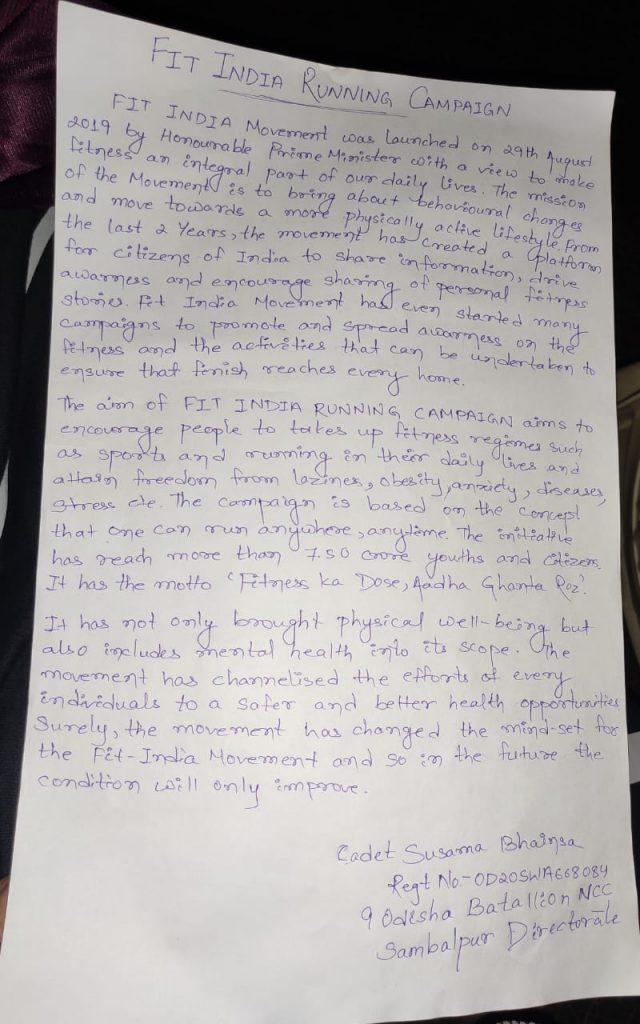 FIT INDIA RUNNING CAMPAIGN
FIT INDIA Movement was launched on 29th August
2019 by Honourable Prime Minister with a view to make
fitness an integral part of our daily lives. The mission
of the Movement is to bring about behavioural changes
and move towards a more physically active lifestyle. From
the last 2 Years, the movement has created a platform
for citizens of India to share information, drive
awarness and encourage sharing of personal fitness
stories. Fit India Movement has even started many
campaigns to promote and spread awarness on the
fitness and the activities that can be undertaken to
ensure that finish reaches every home.
The aim of FIT INDIA RUNNING CAMPAIGN aims to
encourage people to takes up fitness regimes such
as sports and running in their daily lives and
attain freedom from laziness, obesity, anxiety, diseases,
stress etc. The campaign is based on the concept
that one can run anywhere, anytime. The initiative
has reach more than 7.50 crore youths and citizens.
It has the motto 'Fitness ka Dose, Aadha Ghanta Roz'.
It has not only brought physical well-being but
also includes mental health into its scope. The
movement has channelised the efforts of every
individuals to a safer and better health opportunities
Surely, the movement has changed the mind-set for
the Fit-India Movement and so in the future the
condition will only improve.
Cadet Susama Bhainsa
Regt No.- OD20SWA668084
9 Odisha Batallion NCC
Sambalpur Directorate